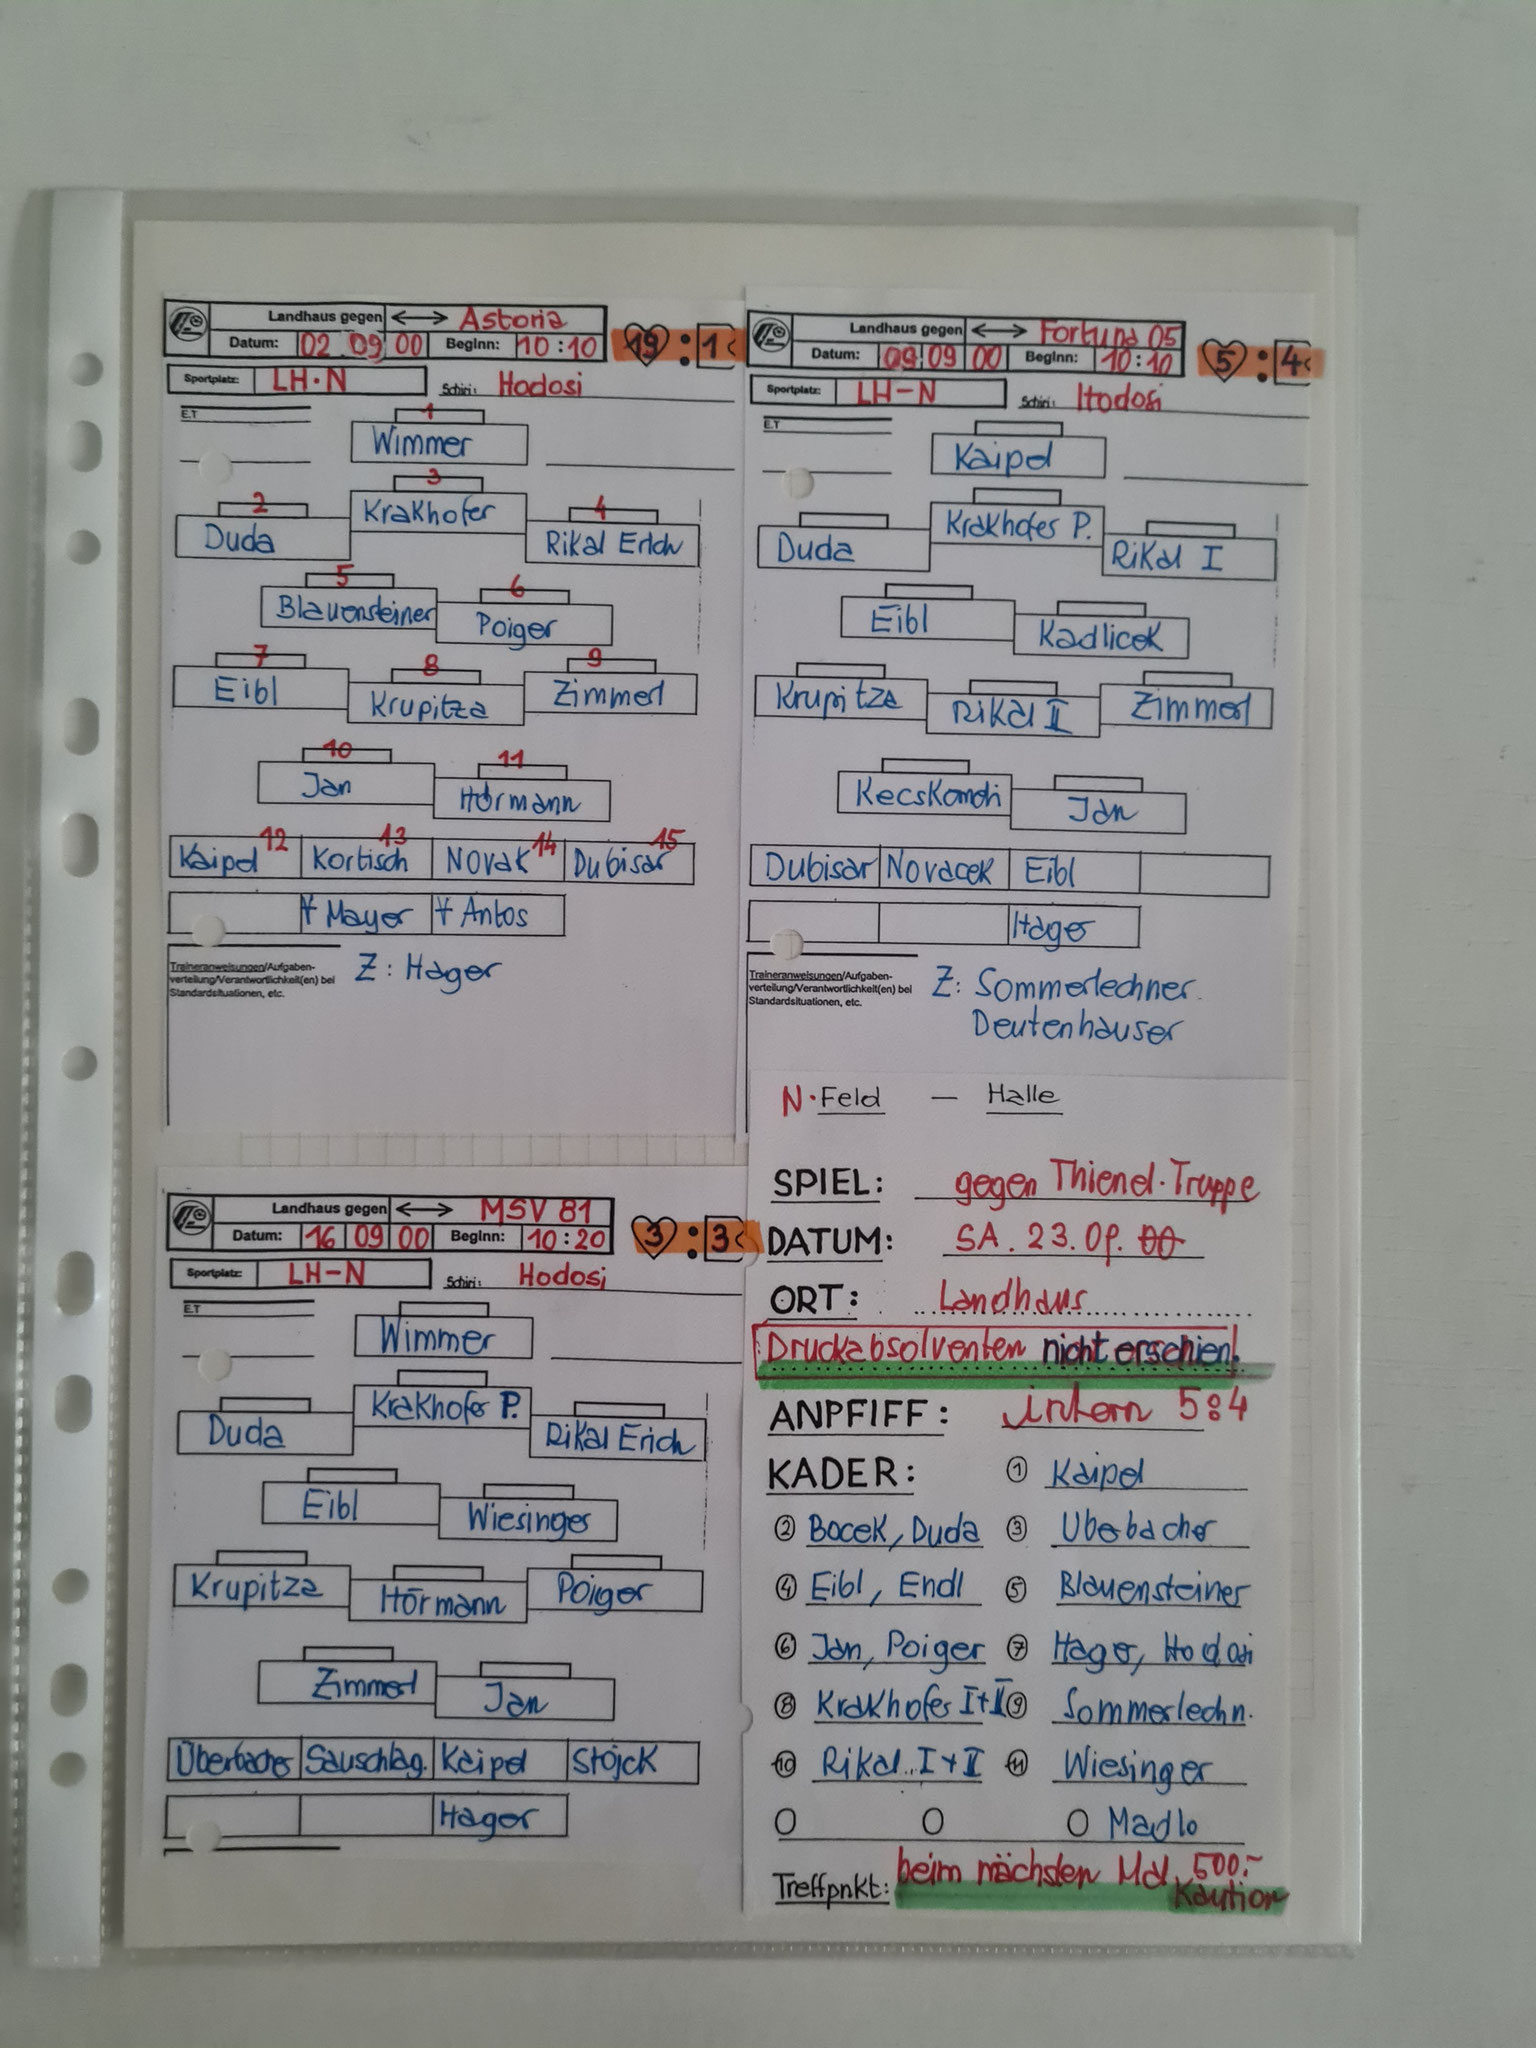 Landhaus gegen ↔ Astoria
Datum: 02 09 00 Beginn: 10:10 19:1
Sportplatz: LH·N Schiri: Hodosi
E.T
1
Wimmer
3
Krakhofer
2 4
Duda Rikal Erich
5 6
Blauensteiner Poiger
7 8 9
Eibl Krupitza Zimmerl
10 11
Jan Hörmann
12 13 14 15
Kaipel Kortisch Novak Dubisar
Mayer Antos
Traineranweisungen/Aufgaben-
verteilung/Verantwortlichkeit(en) bei
Standardsituationen, etc.
Z: Hager
Landhaus gegen ↔ Fortuna 05
Datum: 09 09 00 Beginn: 10:10 5:4
Sportplatz: LH-N Schiri: Hodosi
E.T
Kaipel
Krakhofer P.
Duda Rikal I
Eibl Kadlicek
Krupitza Rikal II Zimmerl
Kecskemeti Jan
Dubisar Novacek Eibl
Hager
Traineranweisungen/Aufgaben-
verteilung/Verantwortlichkeit(en) bei
Standardsituationen, etc.
Z: Sommerlechner
Deutenhauser
Landhaus gegen ↔ MSV 81
Datum: 16 09 00 Beginn: 10:20 3:3
Sportplatz: LH-N Schiri: Hodosi
E.T
Wimmer
Krakhofer P.
Duda Rikal Erich
Eibl Wiesinger
Krupitza Hörmann Poiger
Zimmerl Jan
Überbacher Sauschlag. Kaipel Stojck
Hager
N·Feld — Halle
SPIEL: gegen Thienel·Truppe
DATUM: SA. 23.09. 00
ORT: Landhaus
Druckabsolventen nicht erschien!
ANPFIFF: intern 5:4
KADER: 1 Kaipel
2 Bocek, Duda 3 Überbacher
4 Eibl, Endl 5 Blauensteiner
6 Jan, Poiger 7 Hager, Hodosi
8 Krakhofer I+II 9 Sommerlechn.
10 Rikal I+II 11 Wiesinger
Madlo
Treffpnkt: beim nächsten Mal 500.-
Kaution